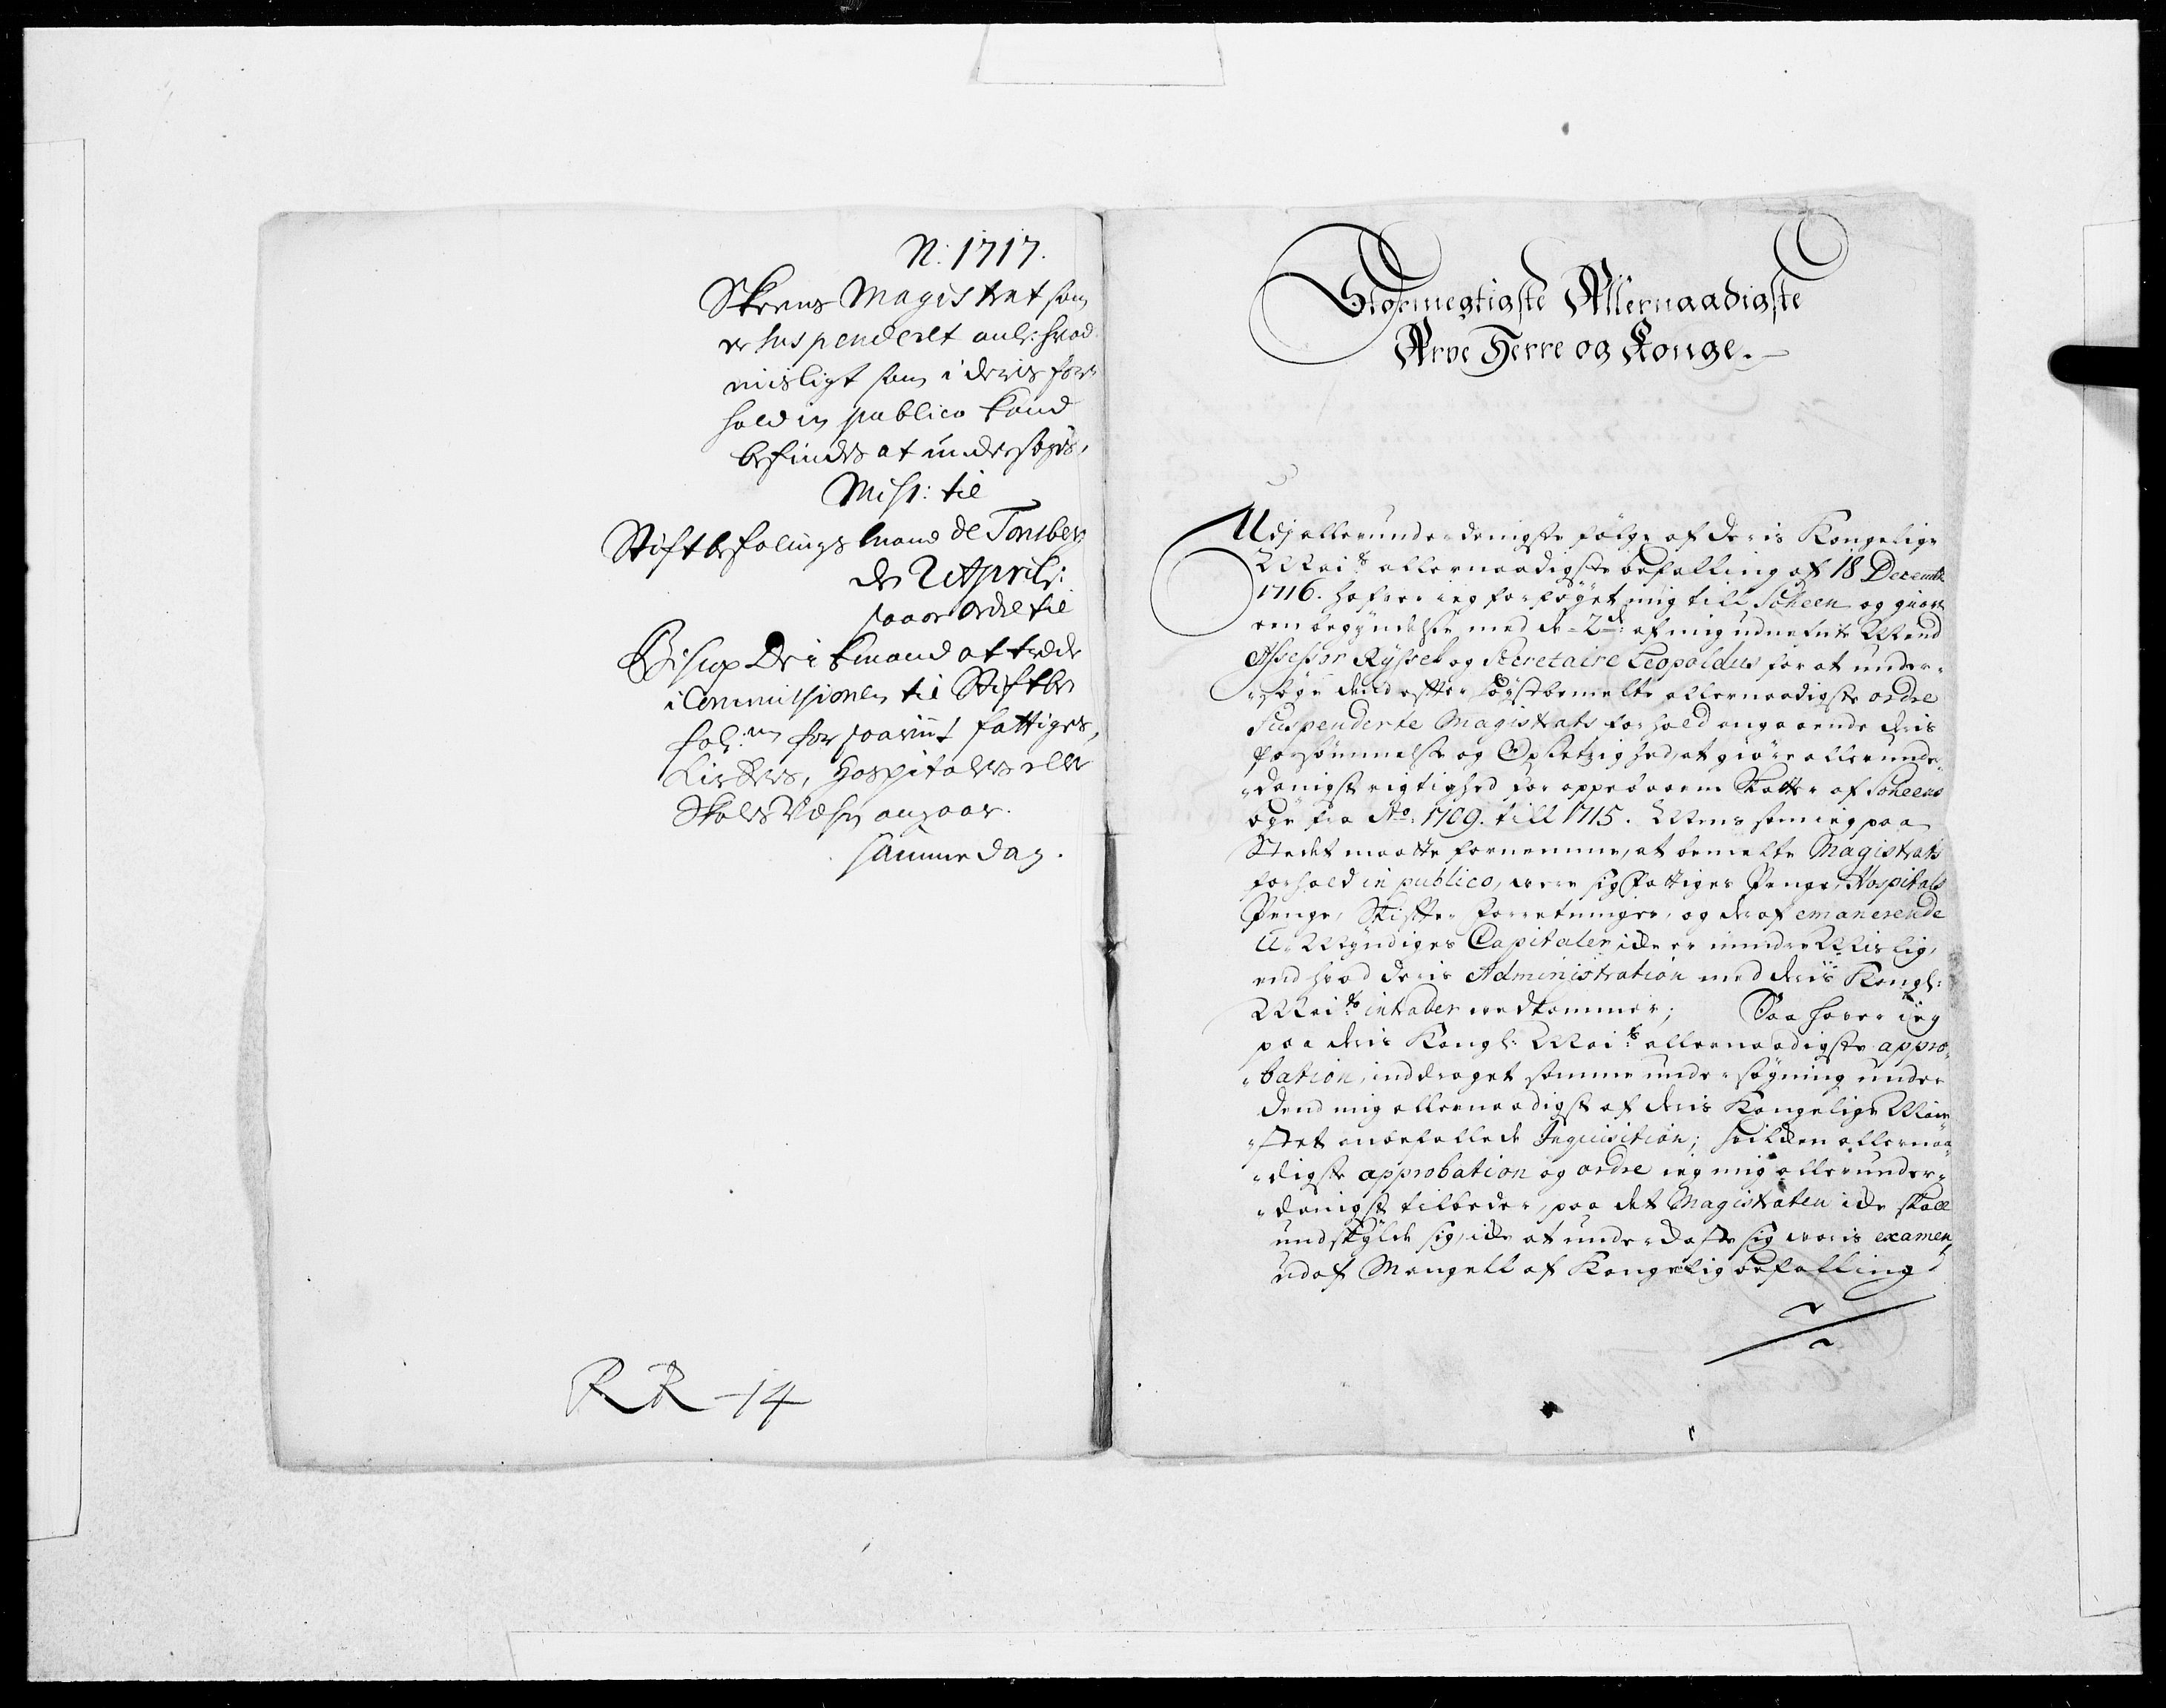 N. 1717.
Skeens Magistrat som
er suspenderet anl: hvad
misligt som i deris for¬
hold in publico kand
befindes at undersøges,
Miss: til
Stiftbefalings Mand de Tonsberg
de 2 April:
saa og ordre til
Bisop Deichmand at træde
i Commissionen til Stiftbe
fal:en for saavit fattiges,
Kirkers, Hospitalers eller
Skolers Væsen angaar.
samme dag.
RR - 14
Stormegtigste Allernaadigste
Arve Herre og Konge.
Udj allerunderdenigste følge af Deris Kongelige
Maits allernaadigste befalling af 18 Decemb:
1716. hafver ieg forføyet mig till Scheen og giort
een begyndelse med de 2de af mig udnefnte Mænd
Assessor Ryssel og Secretaire Leopoldus for at under¬
¬søge dend efter høystbemelte allernaadigste ordre
Suspenderte Magistrats forhold angaaende deris
forsømmelse og Opsetzighed, at giøre allerunder¬
¬danigst rigtighed for oppebaarne Skatter af Scheens
bye fra Ao: 1709. till 1715. Mens som ieg paa
Stedet maatte fornemme, at bemelte Magistrats
forhold in publico, være sig Fattiges Penge, Hospitals
Penge, Skifter Forretninger, og deraf emanerende
U-Myndiges Capitaler icke er mindre Mislig,
end hvad deris Administration med deris Kongl:
Maits intrader vedkommer; Saa haver ieg
paa deris Kongl: Maits allernaadigste appro¬
¬bation, inddraget samme undersøgning under
dend mig allernaadigst af deris Kongelige Maie¬
¬stet anbefallede Inquisition; hvilken allernaa¬
¬digste approbation og ordre ieg mig allerunder¬
¬danigst tilbeder, paa det Magistraten icke skall
undskylde sig, icke at underkaste sig voris examen,
udaf Mangell af Kongelig befalling